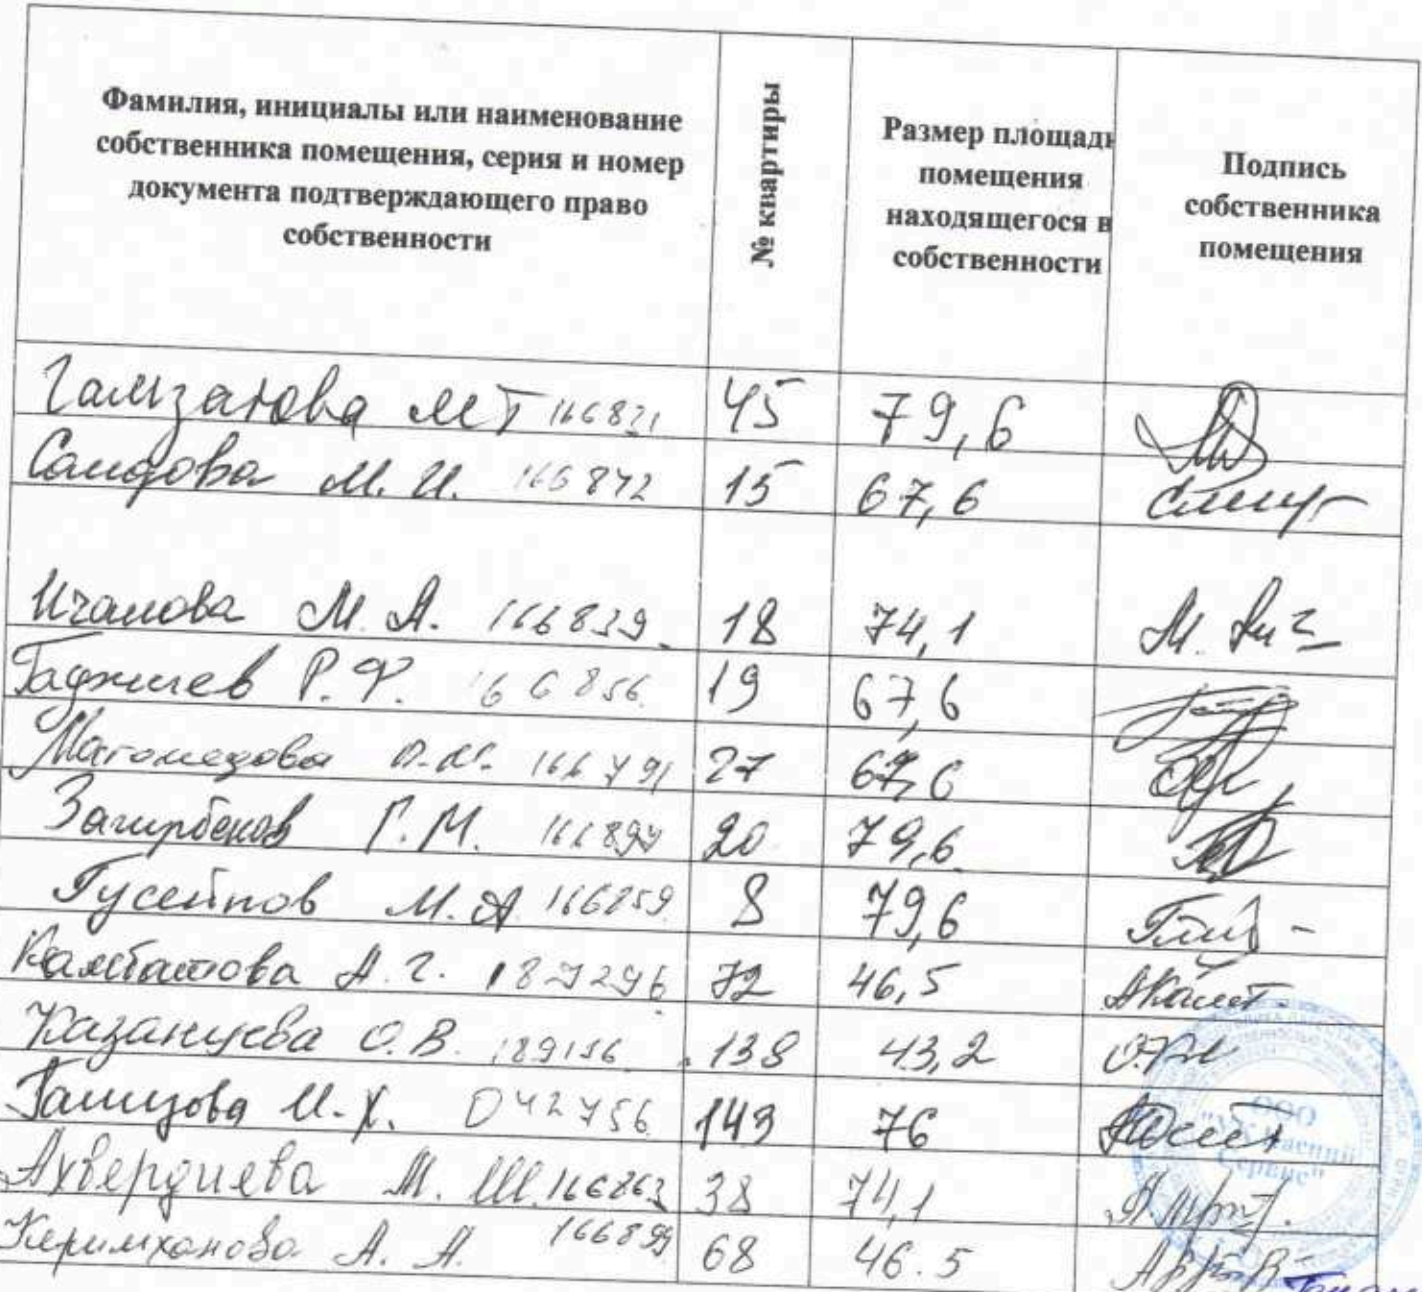 Фамилия, инициалы или наименование
собственника помещения, серия и номер
документа подтверждающего право
собственности
№ квартиры
Размер площади
помещения
находящегося в
собственности
Подпись
собственника
помещения
Гамзатова М Т 166821 45 79,6
Саидова М. И. 166872 15 67,6
Ичалова М. А. 166839 18 74,1
Гаджиев Р. Ф. 166856 19 67,6
Магомедова 166791 27 67,6
Загирбеков Г. М. 20 79,6
Гусейнов М. А 166859 8 79,6
А. Г. 72 46,5
Казанчева О. В. 189156 138 43,2
И. Х. 042756 149 76
Ахвердиева М. Ш. 166863 38 74,1
Керимханова А. А. 166899 68 46.5
ООО
"УК Каспий
Сервис"